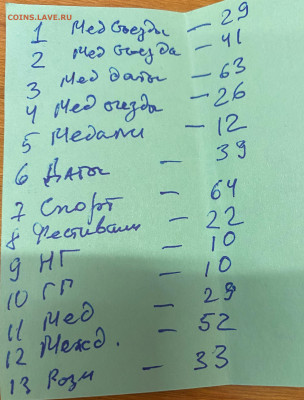 COINS.LAV.RU
1 Мед съезды — 29
2 Мед съезда — 41
3 Мед даты — 63
4 Мед съезды — 26
5 Медали — 12
6 Даты — 39
7 Спорт — 64
8 Фестивали — 22
9 НГ — 10
10 ГП — 10
11 Мед — 29
12 Межд. — 52
13 Разн — 33